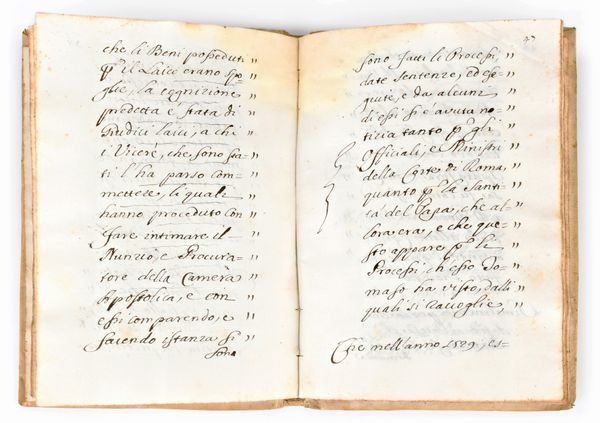 che li Beni posseduti "
p il Laice erano spo= "
glie, la cognizione "
predetta è stata di "
Giudici laici, a chi "
i Vicerè, che sono sta= "
ti l'ha parso com= "
mettere, li quali "
hanno proceduto con "
fare intimare il "
Nunzio, e Procura= "
tore della Camera "
Apostolica, e con "
essi comparendo, e "
facendo istanza si "
sono
47
sono fatti li Processi, "
date sentenze, ed ese= "
quite, e da alcuni "
di essi si è avuta no= "
tizia tanto p gli "
Officiali, e Ministri "
della Corte di Roma, "
quanto p la Santi= "
tà del Papa, che al= "
lora era, e che que= "
sto appare p li "
Processi, ch'esso To= "
maso ha visto, dalli "
quali si raccoglie, "
Che nell'anno 1529, es=